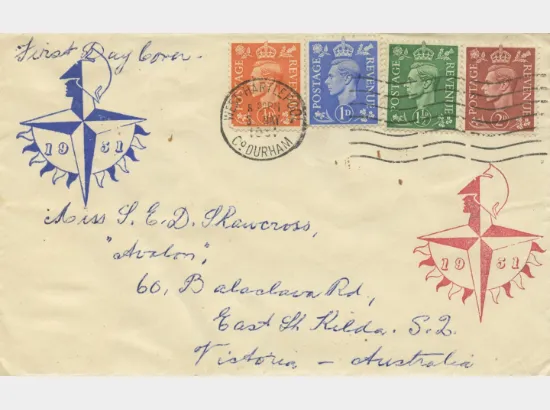 First Day Cover.
POSTAGE REVENUE
POSTAGE REVENUE 1D
POSTAGE REVENUE 1½D
POSTAGE REVENUE 2D
WEST HARTLEPOOL
1951
Co DURHAM
1951
Miss S. E. D. Shawcross,
"Avalon",
60, Balaclava Rd,
East St Kilda. S.2.
Victoria - Australia
1951